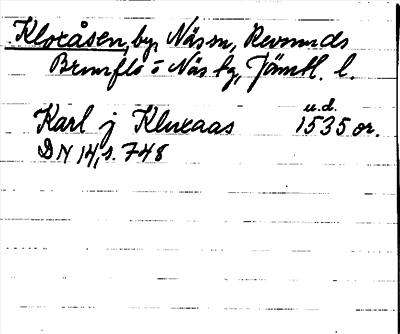 Kloxåsen, by, Näs sn, Revsunds
Brunflo o Näs tg, Jämtl. l.
u.d.
Karl j Kluxaas 1535 or.
DN 14, s. 748